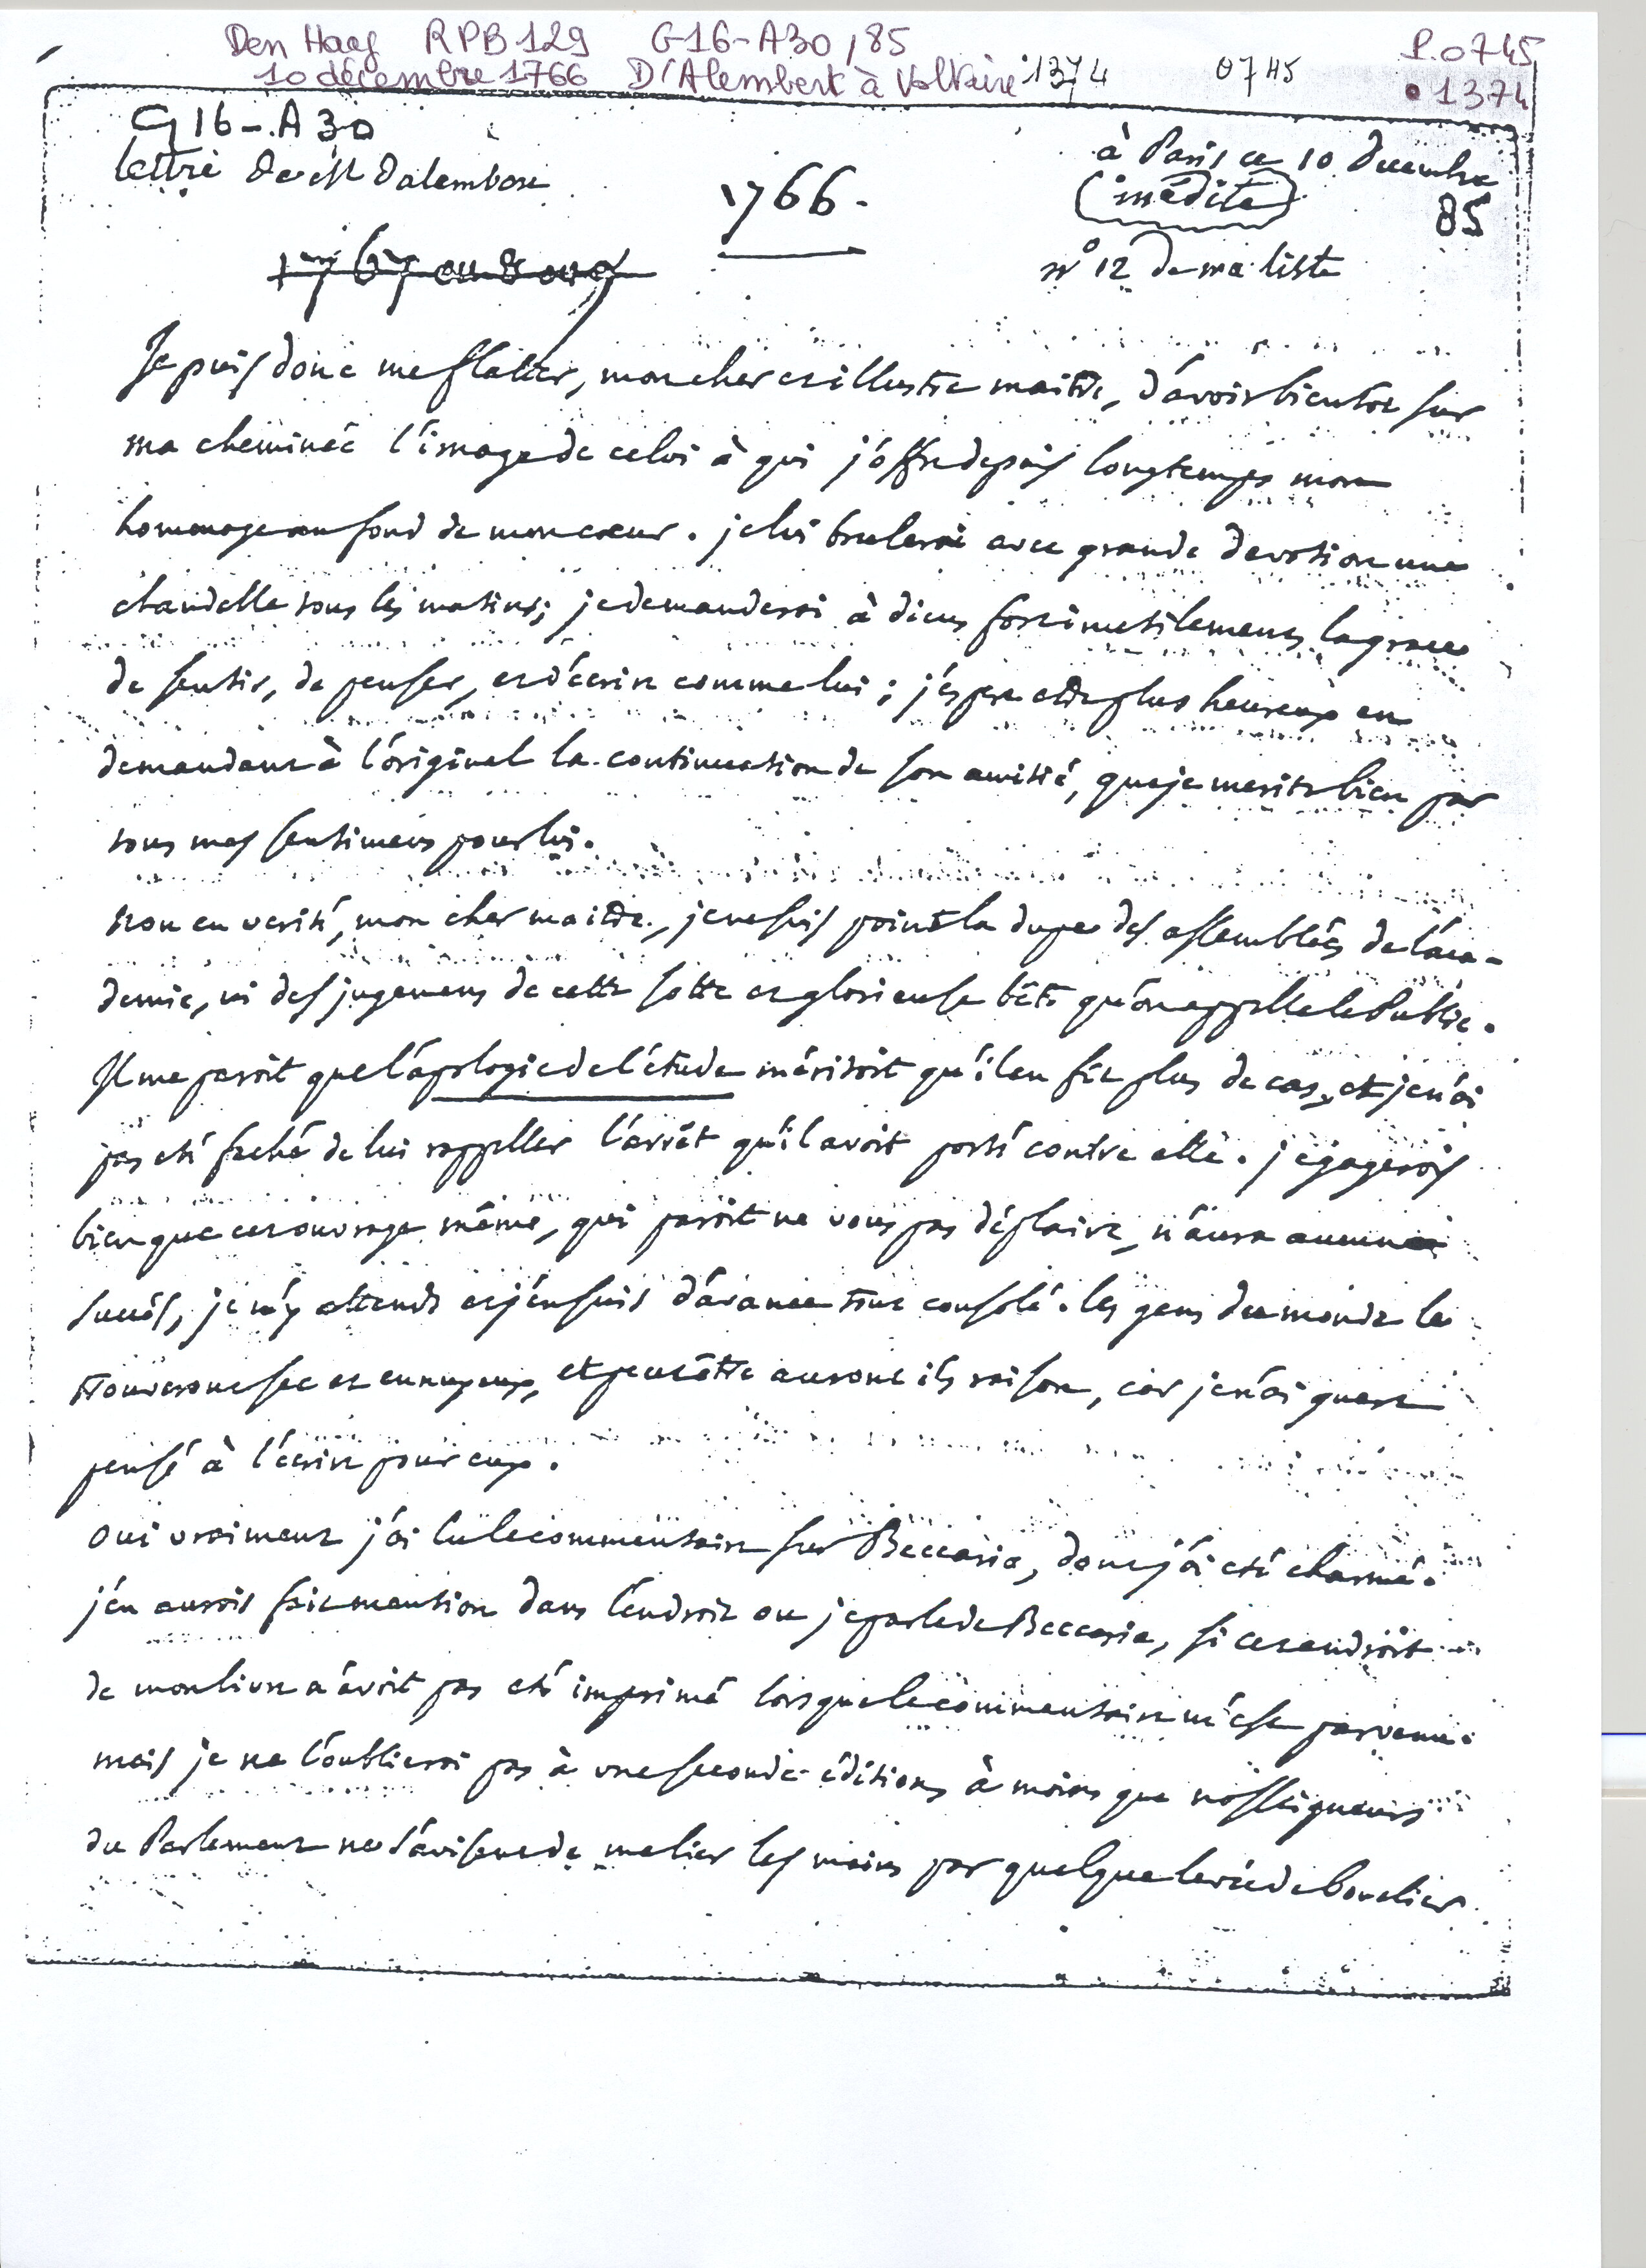 Den Haag RPB 129 G16-A30, 85 P.0745
10 décembre 1766 D'Alembert à Voltaire 1374 0745 1374
G16-A30
lettre de Dalembert
à Paris ce 10 decembre
1766.
(inédite)
85
n° 12 de ma liste
Je puis donc me flatter, mon cher et illustre maitre, d'avoir bientot sur
ma cheminée l'image de celui à qui j'offre depuis longtemps mon
homenage au fond de mon cœur. je lui brulerai avec grande devotion une
chandelle tous les matins; je demanderai à dieu fort inutilement la grace
de sentir, de penser, et d'écrire comme lui; j'espere etre plus heureux en
demandant à l'original la continuation de son amitié, que je merite bien par
tous mes sentimens pour lui.
Non en verité, mon cher maitre, je ne suis point la dupe des assemblées de l'aca-
demie, ni des jugemens de cette sotte et glorieuse bête qu'on appelle le Public.
Il me paroit que l'apologie de l'étude méritoit qu'il en fit plus de cas, et je n'ai
pas eté faché de lui rappeller l'arrêt qu'il avoit porté contre elle. je gagerois
bien que cet ouvrage même, qui paroit ne vous pas déplaire, n'aura aucun
succès, je m'y attends et j'en suis d'avance tout consolé. les gens du monde le
trouveront sec et ennuyeux, et peut être auront ils raison, car je n'ai guere
pensé à l'écrire pour eux.
oui vraiment j'ai lu le commentaire sur Beccaria, dont j'ai eté charmé.
j'en aurois fait mention dans l'endroit ou je parle de Beccaria, si cet endroit
de mon livre n'avoit pas eté imprimé lorsque le commentaire m'est parvenu.
mais je ne l'oublierai pas à une seconde édition, à moins que nosseigneurs
du Parlement ne s'avisent de me lier les mains par quelque levée de bouclier